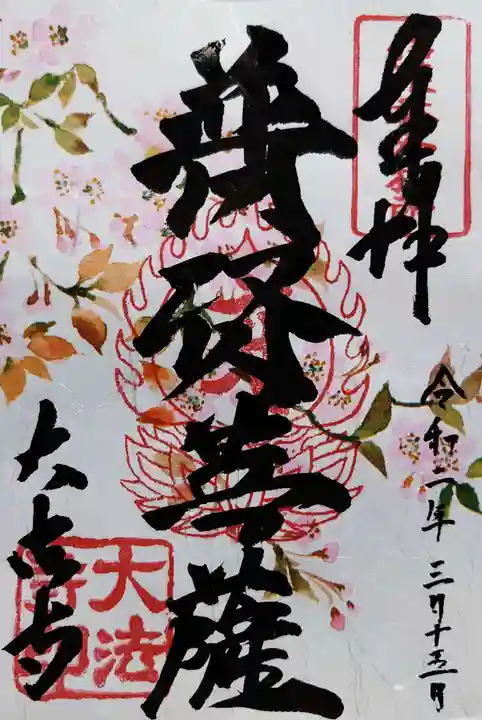 奉拝
令和二年三月十五日
菩薩
大法寺
大法
寺印